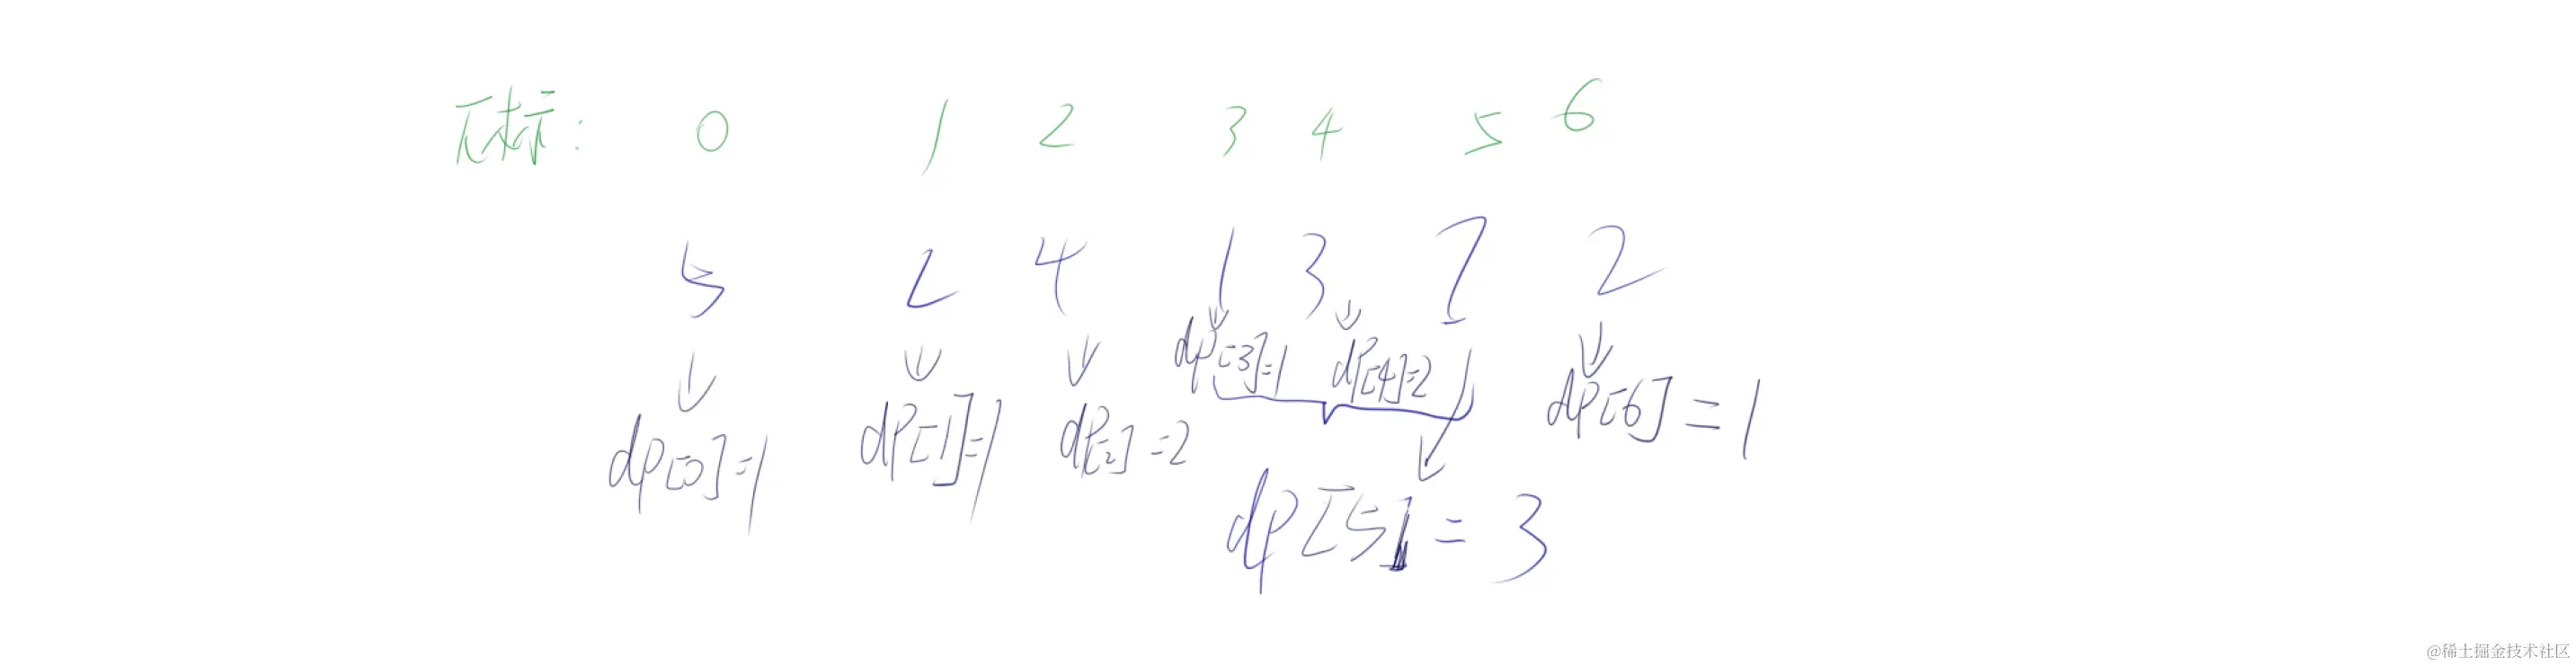 下标: 0 1 2 3 4 5 6
5 2 4 1 3 7 2
dp[3]=1 dp[4]=2
dp[0]=1 dp[1]=1 dp[2]=2 dp[6]=1
dp[5]=3
@稀土掘金技术社区